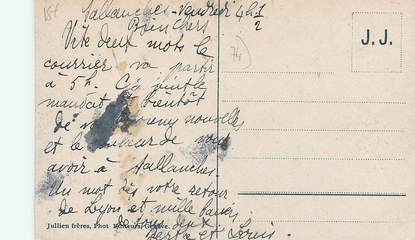 15f
Sallanches - Vendredi 4h 1/2
Bien chers
Vite deux mots le
courrier va partir
à 5h.
bientôt
de nouvelles
et le de vous
avoir à Sallanches.
Un mot dès votre retour
de Lyon et mille baisers
de tous deux
Berthe et Louis.
74
J. J.
Jullien frères, Phot Editeurs, Genève.